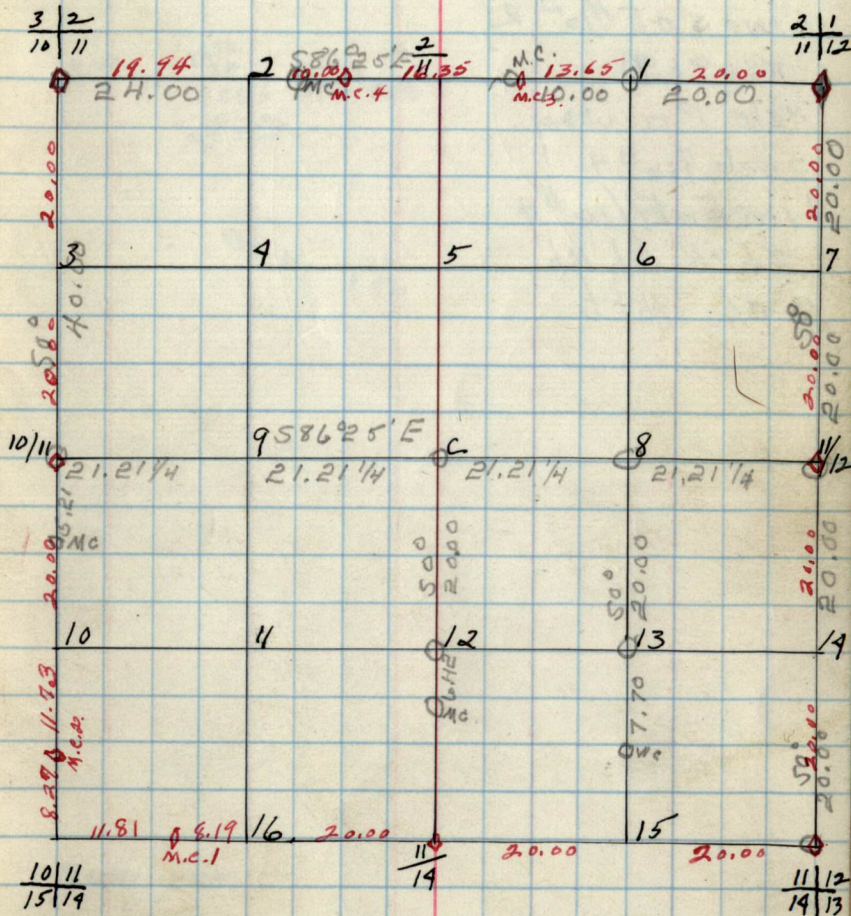 3 2
10 11
2 1
11 12
2
11
19.94
2
S86°25'E
10.00
16.35
M.C.
13.65
1
20.00
24.00
MC
M.C.4
M.C.3
10.00
20.00
20.00
20.00
20.00
3
4
5
6
7
40.00
S0°
20.00
S0°
20.00
20.00
10/11
9
S86°25'E
C
8
11/12
21.21 1/4
21.21 1/4
21.21 1/4
21.21 1/4
MC
20.00
S0°
20.00
S0°
20.00
20.00
20.00
10
11
12
13
14
11.73
8.27
M.C.2.
6.42
MC
7.70
MC
20.00
S0°
20.00
11.81
8.19
16
20.00
15
M.C.1
11
14
20.00
20.00
10 11
15 14
11 12
14 13